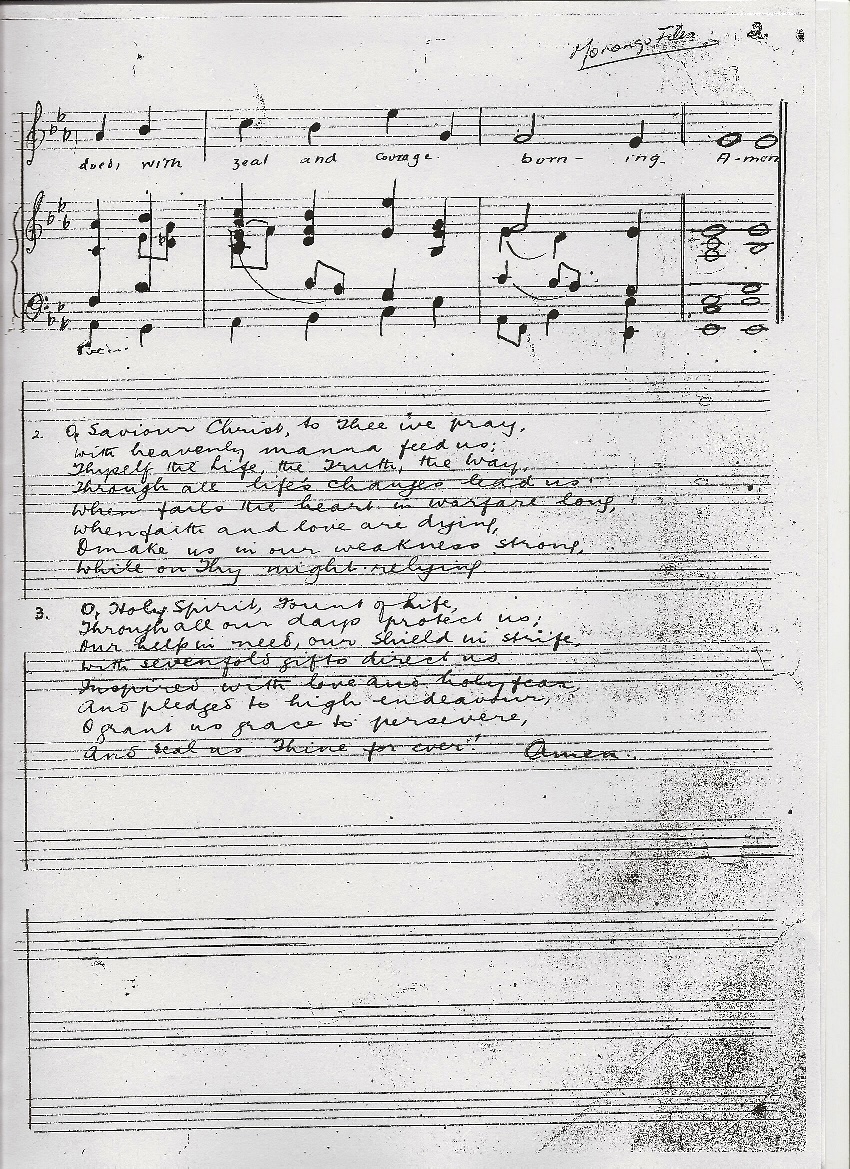 2.
deeds, with zeal and courage burn - ing A-men
2. O, Saviour Christ, to Thee we pray,
With heavenly manna feed us:
Thyself the Life, the Truth, the Way,
Through all life's changes lead us!
When fails the heart in warfare long,
When faith and love are dying,
O make us in our weakness strong,
While on Thy might relying
3. O, Holy Spirit, Fount of Life,
Through all our days protect us;
Our help in need, our shield in strife,
With sevenfold gifts direct us
Inspired with love and holy fear
And pledged to high endeavour,
O grant us grace to persevere,
And seal us Thine for ever! Amen.